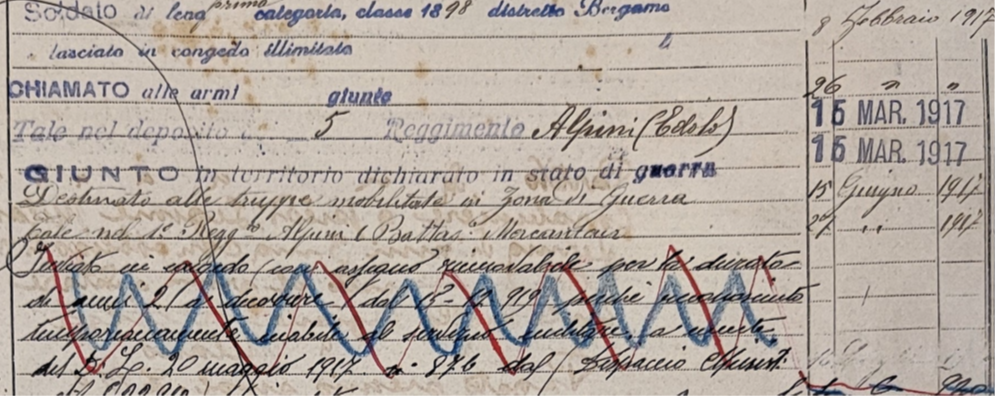 Soldato di leva prima categoria, classe 1898 distretto Bergamo 8 Febbraio 1917
lasciato in congedo illimitato
CHIAMATO alle armi giunto 26 " "
Tale nel deposito 5 Reggimento Alpini (Edolo) 15 MAR. 1917
GIUNTO in territorio dichiarato in stato di guerra 15 MAR. 1917
Destinato alle truppe mobilitate in Zona di Guerra 15 Giugno 1917
Tale nel Regg. Alpini 27 " 1917
Inviato in congedo con assegno rinnovabile per la durata
di anni 2 a decorrere dal 15- 919 perché riconosciuto
temporaneamente inabile al servizio militare a mente
del D. L. 20 maggio 1917 n. 876 dal Dispaccio Minist.